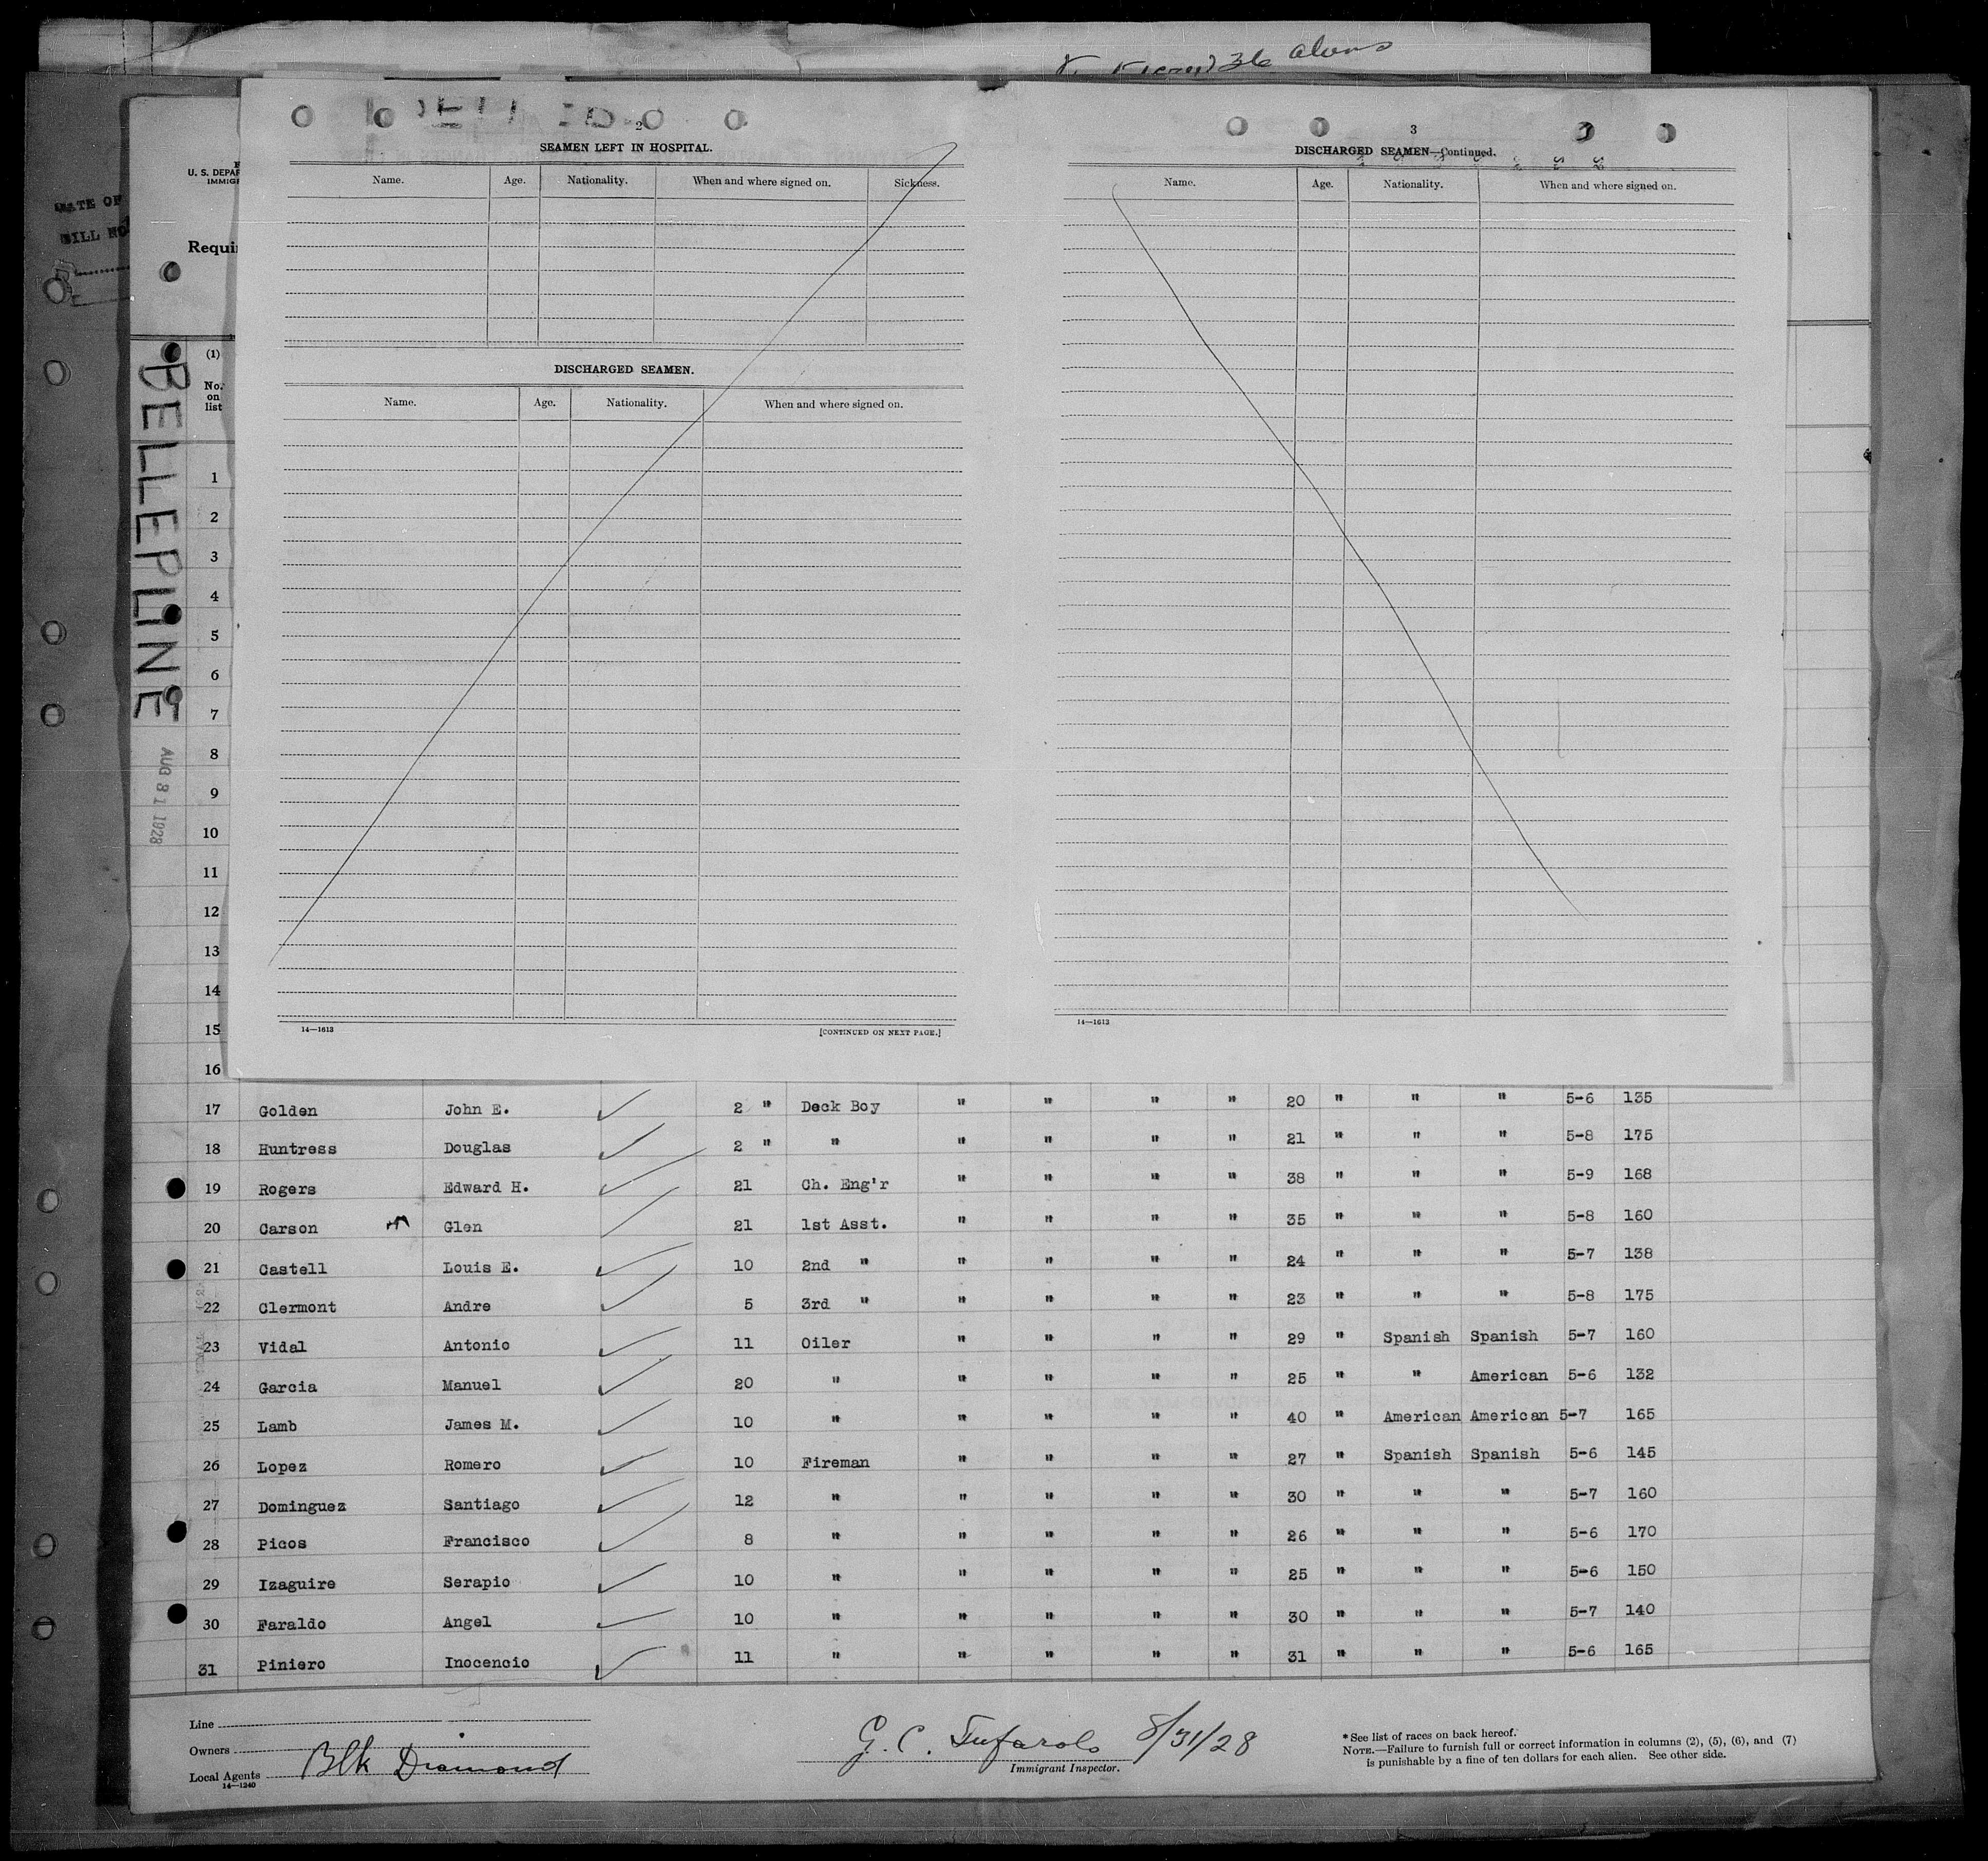 36 alons
DATE OF
BILL NO
U. S. DEPAR
IMMIGR
Requi
BELLEPLINE
AUG 31 1928
(1)
No. on list
2
SEAMEN LEFT IN HOSPITAL.
Name. Age. Nationality. When and where signed on. Sickness.
DISCHARGED SEAMEN.
Name. Age. Nationality. When and where signed on.
14—1613 [CONTINUED ON NEXT PAGE.]
3
DISCHARGED SEAMEN—Continued.
Name. Age. Nationality. When and where signed on.
14—1613
1
2
3
4
5
6
7
8
9
10
11
12
13
14
15
16
17 Golden John E. 2 " Deck Boy " " " " 20 " " " 5-6 135
18 Huntress Douglas 2 " " " " " " 21 " " " 5-8 175
19 Rogers Edward H. 21 Ch. Eng'r " " " " 38 " " " 5-9 168
20 Carson Glen 21 1st Asst. " " " " 35 " " " 5-8 160
21 Castell Louis E. 10 2nd " " " " " 24 " " " 5-7 138
22 Clermont Andre 5 3rd " " " " " 23 " " " 5-8 175
23 Vidal Antonio 11 Oiler " " " " 29 " Spanish Spanish 5-7 160
24 Garcia Manuel 20 " " " " " 25 " " American 5-6 132
25 Lamb James M. 10 " " " " " 40 " American American 5-7 165
26 Lopez Romero 10 Fireman " " " " 27 " Spanish Spanish 5-6 145
27 Dominguez Santiago 12 " " " " " 30 " " " 5-7 160
28 Picos Francisco 8 " " " " " 26 " " " 5-6 170
29 Izaguire Serapio 10 " " " " " 25 " " " 5-6 150
30 Faraldo Angel 10 " " " " " 30 " " " 5-7 140
31 Piniero Inocencio 11 " " " " " 31 " " " 5-6 165
Line
Owners
Local Agents Blk Diamond
14—1240
G. C. Tufarolo 8/31/28
Immigrant Inspector.
* See list of races on back hereof.
NOTE.—Failure to furnish full or correct information in columns (2), (5), (6), and (7)
is punishable by a fine of ten dollars for each alien. See other side.